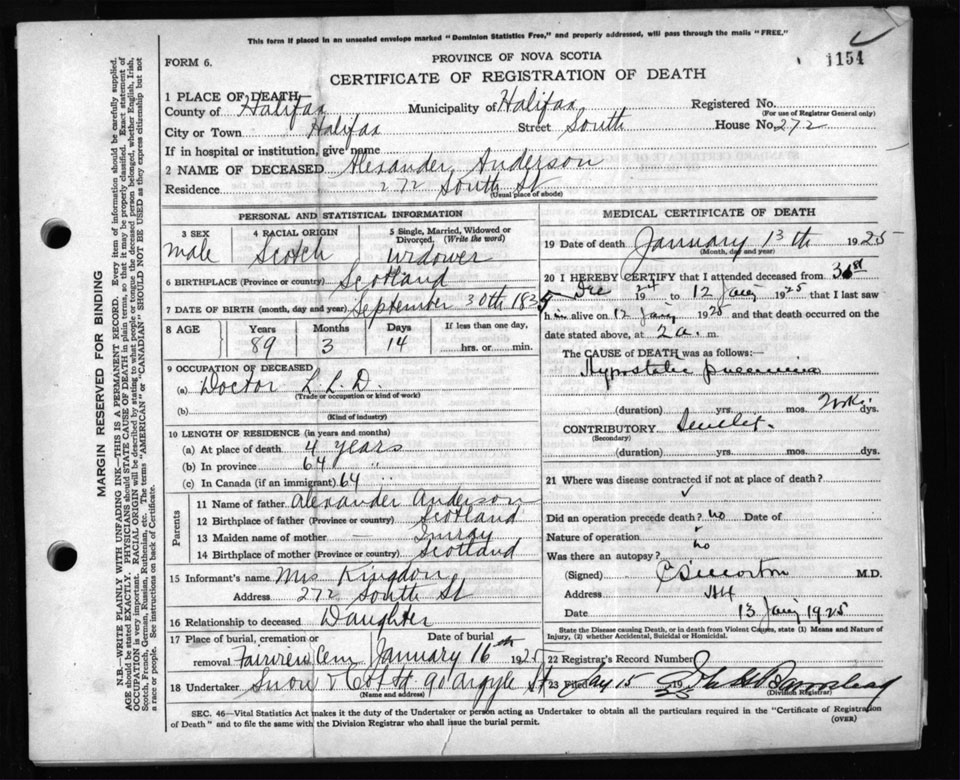 This form if placed in an unsealed envelope marked "Dominion Statistics Free," and properly addressed, will pass through the mails "FREE."
1154
FORM 6.
PROVINCE OF NOVA SCOTIA
CERTIFICATE OF REGISTRATION OF DEATH
1 PLACE OF DEATH
County of Halifax Municipality of Halifax Registered No.
(For use of Registrar General only)
City or Town Halifax Street South House No. 272
If in hospital or institution, give name
2 NAME OF DECEASED Alexander Anderson
Residence 272 South St
(Usual place of abode)
PERSONAL AND STATISTICAL INFORMATION
3 SEX
male
4 RACIAL ORIGIN
Scotch
5 Single, Married, Widowed or Divorced. (Write the word)
Widower
6 BIRTHPLACE (Province or country) Scotland
7 DATE OF BIRTH (month, day and year) September 30th 1835
8 AGE Years Months Days If less than one day,
89 3 14 hrs. or min.
9 OCCUPATION OF DECEASED
(a) Doctor L.L.D.
(Trade or occupation or kind of work)
(b)
(Kind of industry)
10 LENGTH OF RESIDENCE (in years and months)
(a) At place of death 4 years
(b) In province 64 "
(c) In Canada (if an immigrant) 64 "
Parents
11 Name of father Alexander Anderson
12 Birthplace of father (Province or country) Scotland
13 Maiden name of mother — Imray
14 Birthplace of mother (Province or country) Scotland
15 Informant's name Mrs Kingdon
Address 272 South St
16 Relationship to deceased Daughter
17 Place of burial, cremation or removal Fairview Cem
Date of burial January 16th 1925
18 Undertaker Snow & Co Ltd 90 Argyle St
(Name and address)
MEDICAL CERTIFICATE OF DEATH
19 Date of death January 13th 1925
(Month, day and year)
20 I HEREBY CERTIFY that I attended deceased from 31st
Dec 1924 to 12 Jany 1925 that I last saw
him alive on 12 Jany 1925 and that death occurred on the
date stated above, at 2 a. m.
The CAUSE OF DEATH was as follows:
Hypostatic pneumonia
(duration) yrs. mos. 2 wks. dys.
CONTRIBUTORY Senility.
(Secondary)
(duration) yrs. mos. dys.
21 Where was disease contracted if not at place of death?
Did an operation precede death? no Date of
Nature of operation
Was there an autopsy? no
(Signed) M.D.
Address
Date 13 Jany 1925
State the Disease causing Death, or in death from Violent Causes, state (1) Means and Nature of
Injury, (2) whether Accidental, Suicidal or Homicidal.
22 Registrar's Record Number
23 Filed Jany 15 1925
(Division Registrar)
SEC. 46—Vital Statistics Act makes it the duty of the Undertaker or person acting as Undertaker to obtain all the particulars required in the "Certificate of Registration
of Death" and to file the same with the Division Registrar who shall issue the burial permit.
(OVER)
MARGIN RESERVED FOR BINDING
N.B.—WRITE PLAINLY WITH UNFADING INK—THIS IS A PERMANENT RECORD. Every item of information should be carefully supplied.
AGE should be stated EXACTLY. PHYSICIANS should STATE CAUSE OF DEATH in plain terms, so that it may be properly classified. Exact statement of
OCCUPATION is very important. RACIAL ORIGIN will be described by stating to what people or tongue the deceased person belonged, whether English, Irish,
Scotch, French, German, Russian, Ruthenian, etc. The terms "AMERICAN" or "CANADIAN" SHOULD NOT BE USED as they express citizenship but not
race or people. See instructions on back of Certificate.